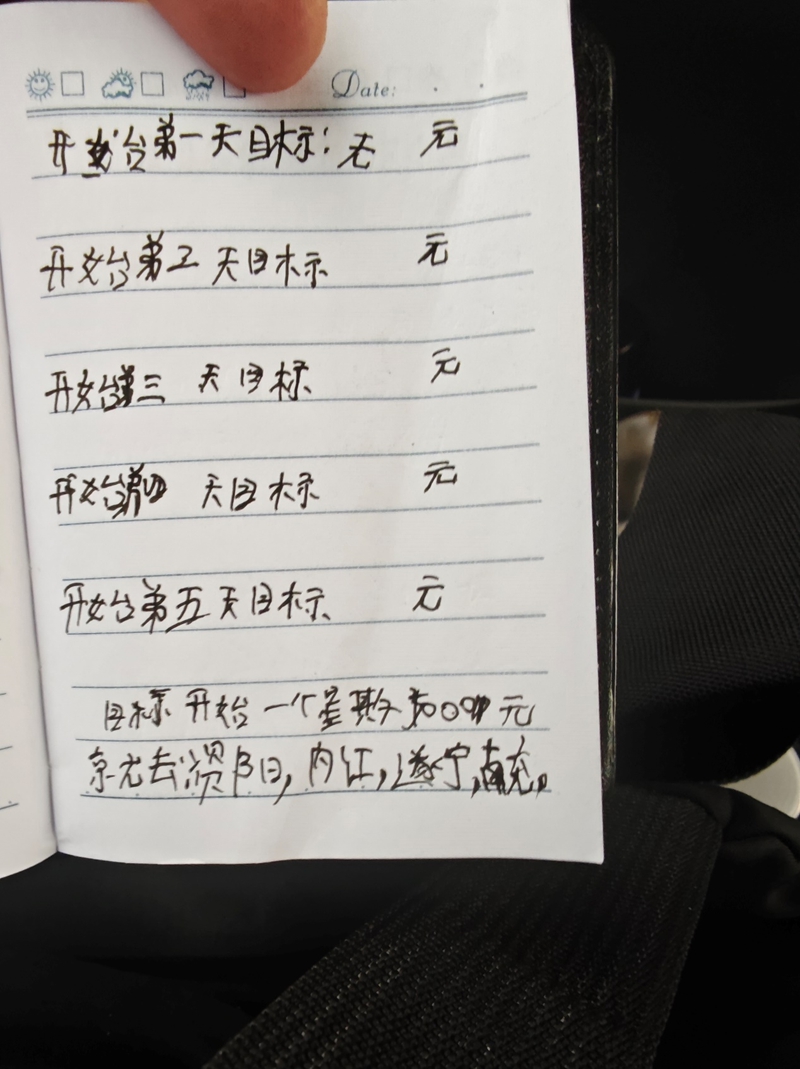 Date:
开始第一天目标: 元
开始第二天目标 元
开始第三天目标 元
开始第四天目标 元
开始第五天目标 元
目标开始一个星期 元
去资阳,内江,遂宁,南充。